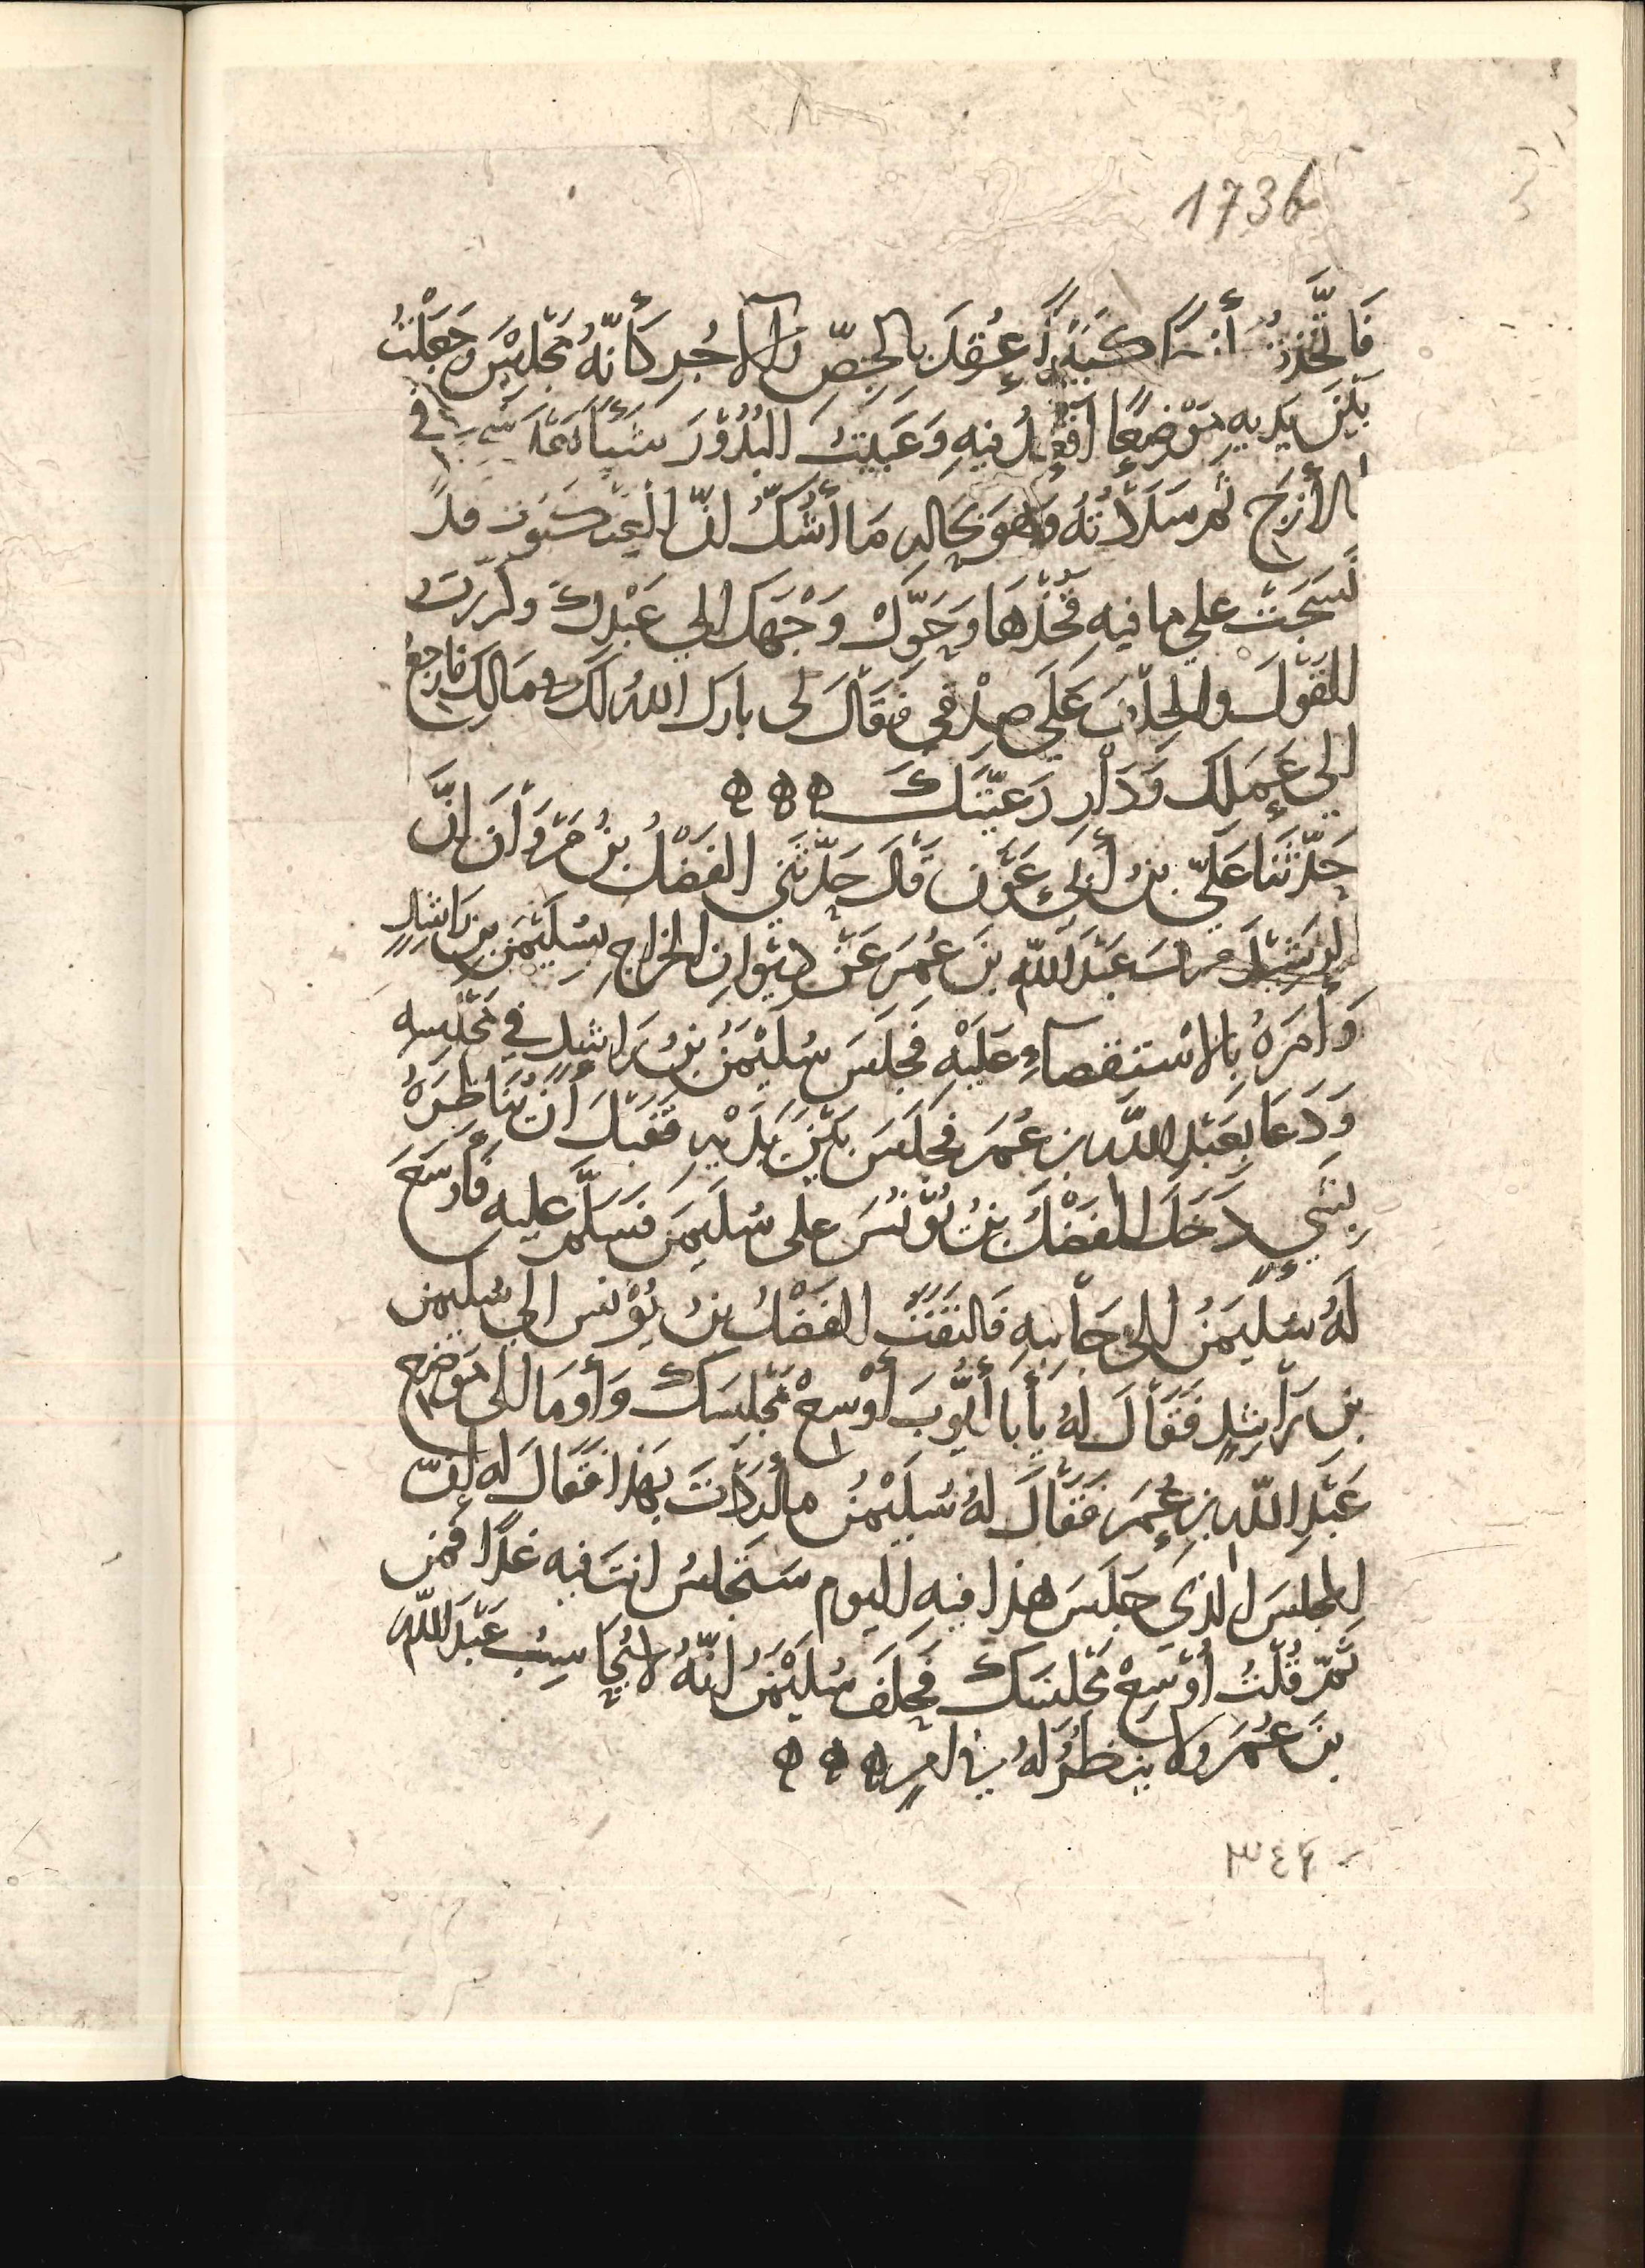 1736
فَاتَّخَذْتُ أَزَجًا كَبِيْرًا عُقِدَ بِالجِصّ وَالآجُرِ كَأَنّهُ مَجْلِسٌ وَجَعَلْتُ
بَيْنَ يَديهِ مَوْضِعًا فِيهِ وَعَبَيتُ البُدُوْرَ فِي
الأَزَج ثُمَّ سَدَدْتُهُ وَهُوَ بِحَالِهِ مَا أَشُكُّ انّ العَنْكَبُوت قد
نَسَجَتْ علي ما فيهِ فَخُذْهَا وَحَوّلْ وَجْهَكَ الي عَبْدِكَ وكرّرت
القَوْلَ والحِلْفَ عَلَي صِدْقِي فَقَالَ لى بارك اللهُ لَكَ في مَالِكَ فَارجِعْ
الي عَمَلِكَ وَدَارِ رَعِيّتَكَ ه ه ه
حَدّثَنَا عَلِيّ بنُ أَبِي عَوْن قَالَ حَدّثَنِي الفَضْلُ بنُ مَرْوَانَ انَّ
الرشيدَ صرفَ عَبْدَ اللّهِ بنَ عُمَرَ عَنْ دِيْوَانِ الخَرَاجِ بِسُلَيْمَنَ بنِ رَاشِدٍ
وَأَمَرَهُ بِالاسْتِقْصَاءِ عَلَيْهِ فَجَلَسَ سُلَيْمَنُ بنُ رَاشِدٍ فِي مَجْلِسِهِ
وَدَعَا بِعَبْدِ اللّهِ بنِ عُمَرَ فَجَلَسَ بَيْنَ يَدَيْهِ فَقَبْلَ أَنْ يُنَاظِرَهُ
بِشَيءٍ دَخَلَ الفَضْلُ بنُ يُوْنُسَ على سُلَيمَنَ فَسَلَّمَ عليهِ فَأَوسَعَ
لَهُ سُلَيمَنُ الى جَانِبِهِ فَالتَفَتَ الفَضْلُ بنُ يُوْنس الي سُليمن
بن رَاشِدٍ فَقَالَ لَهُ يَأَبَا أَيُّوبَ أَوْسِعْ مَجْلِسَكَ وَأَومَا الى مَوضِعِ
عَبْدِ اللّهِ بنِ عُمَرَ فَقَالَ لَهُ سُلَيْمَنُ ما أَرَدْتَ بِهَذَا فَقَالَ لَه انّ
المَجلِسَ الذى جَلَسَ هذا فِيهِ اليوم سَتَجلسُ انتَ فيه غَدًا فمن
ثَمّ قُلْتُ أَوْسِعْ مَجْلِسَكَ فَحَلَفَ سُلَيْمَنُ انّهُ لا يُحَاسِبُ عَبْدَ اللّهِ
بنَ عُمَرَ ولا يَنظُرُ لَهُ فِي امرٍ ه ه ه
٣٤٦